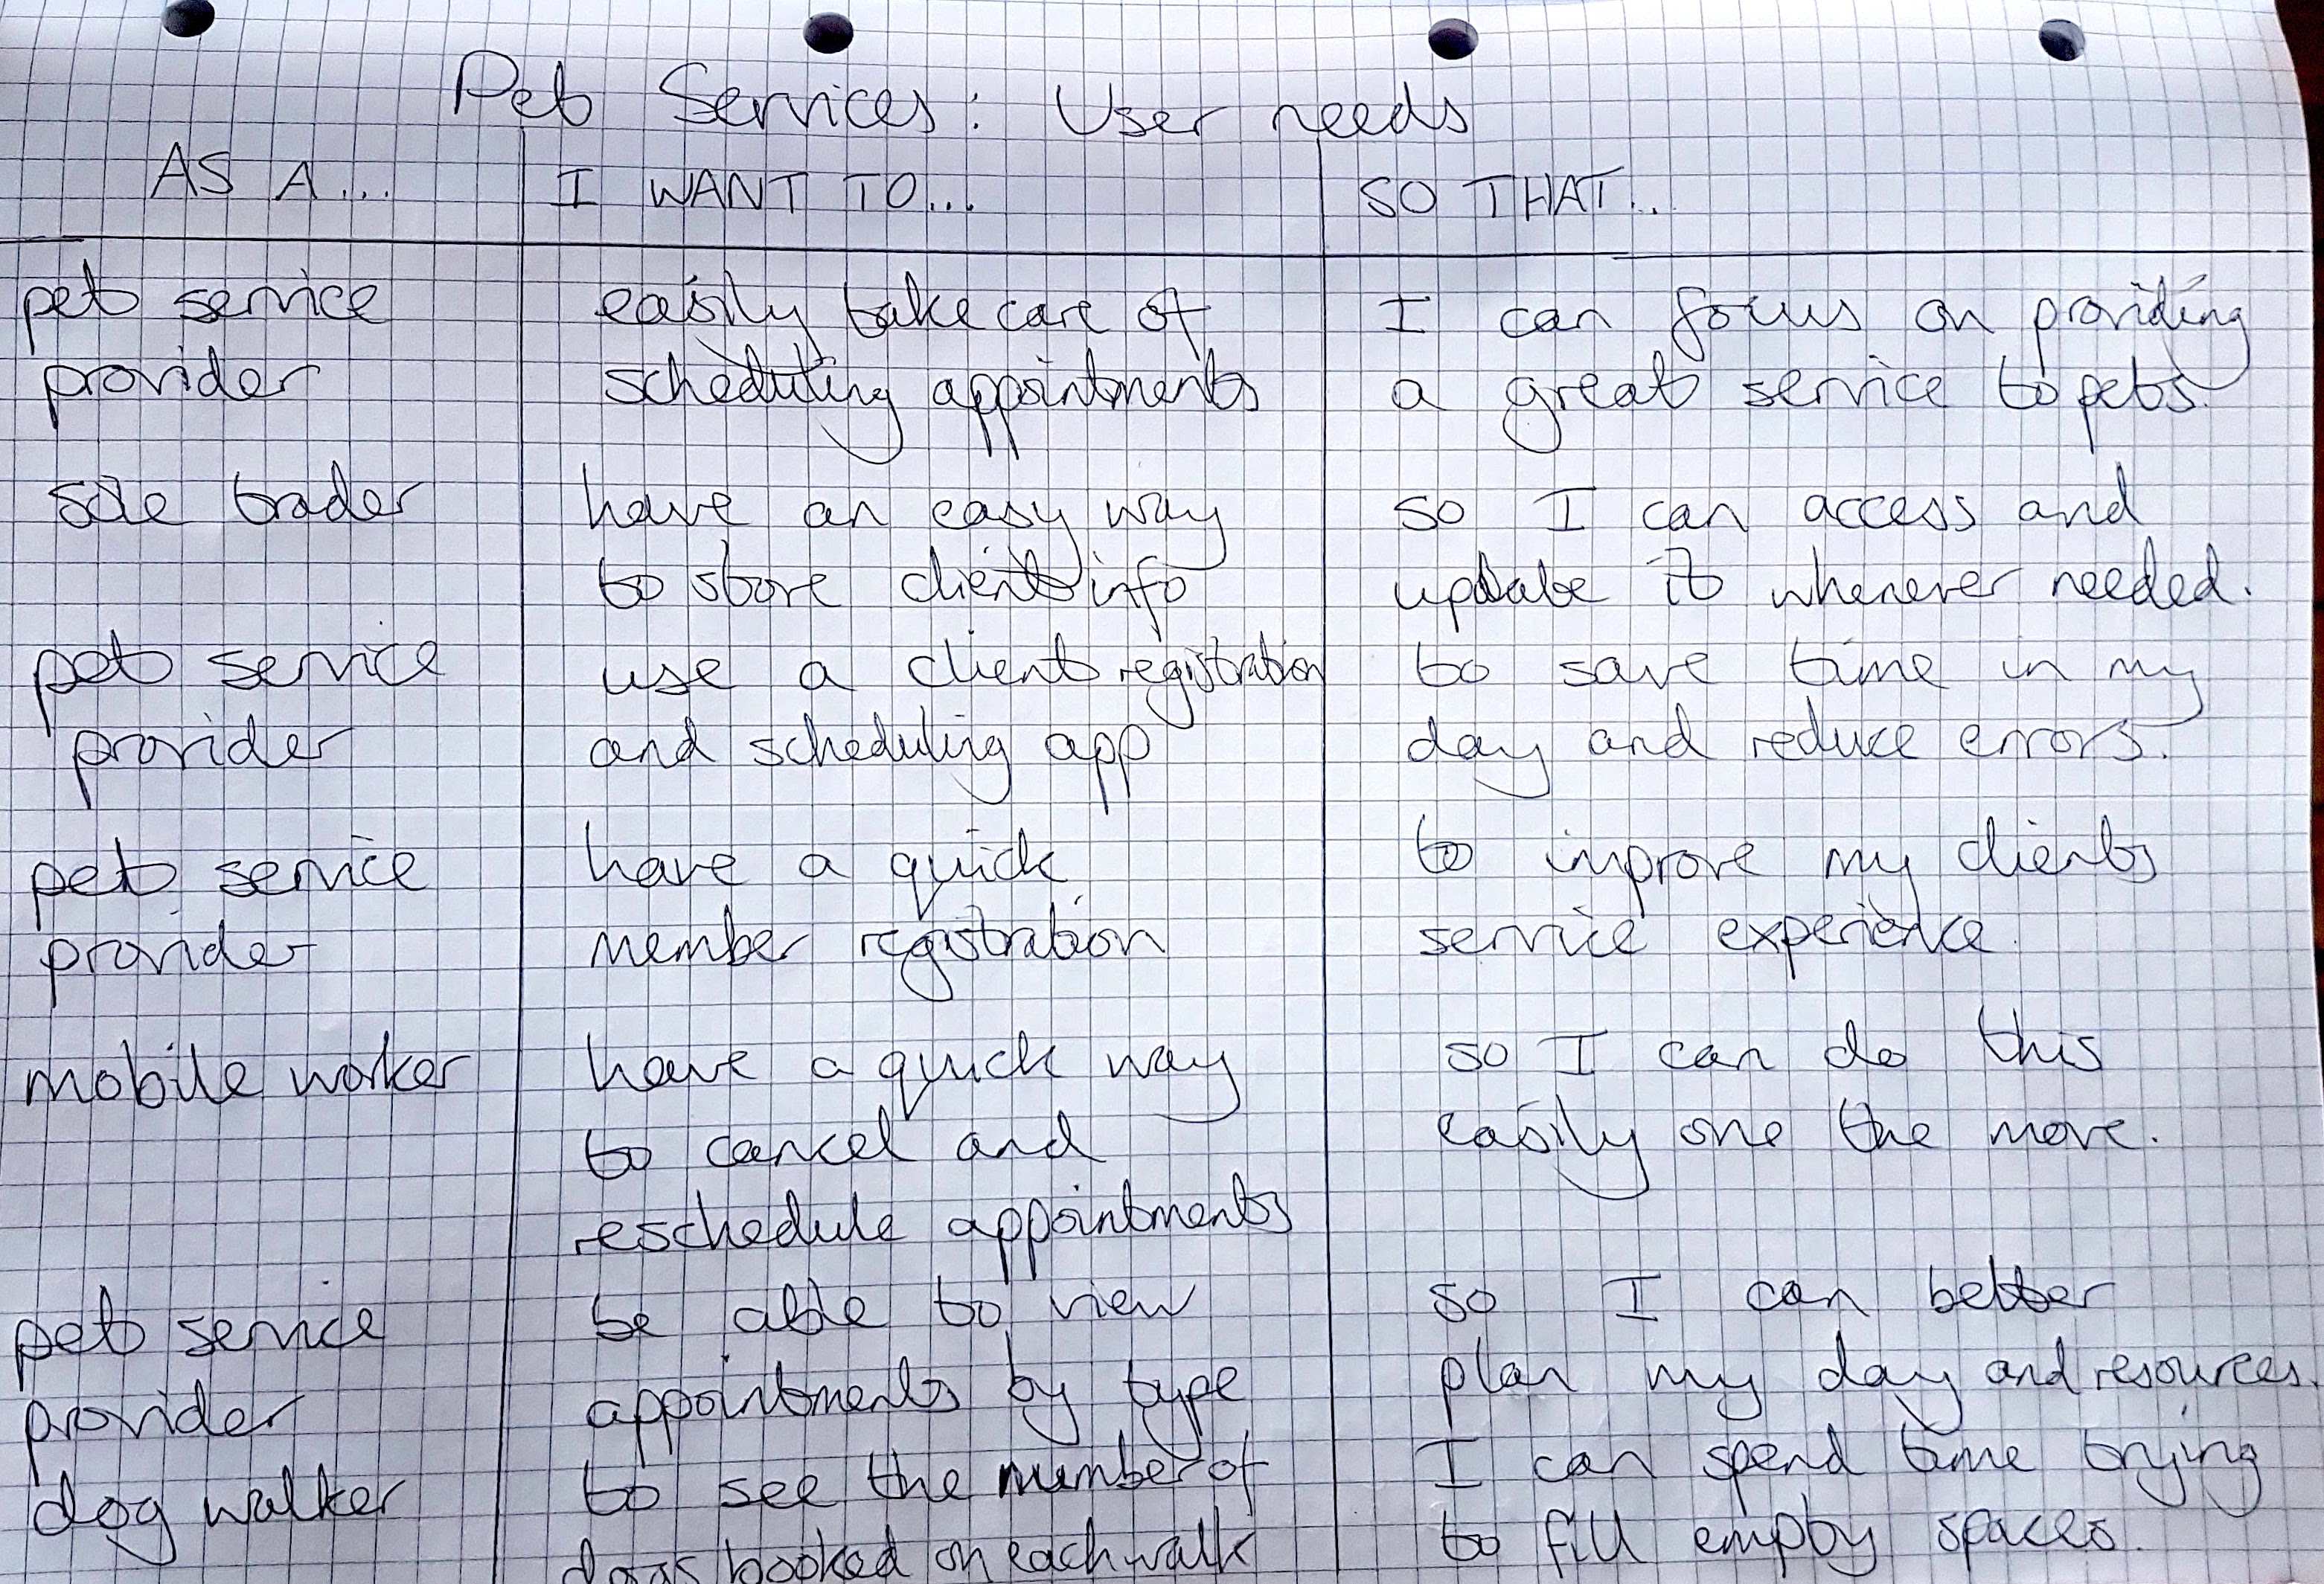 Pet Services: User needs
AS A...
I WANT TO...
SO THAT...
pet service
provider
easily take care of
scheduling appointments
I can focus on providing
a great service to pets.
sole trader
have an easy way
to store client info
so I can access and
update it whenever needed.
pet service
provider
use a client registration
and scheduling app
to save time in my
day and reduce errors.
pet service
provider
have a quick
member registration
to improve my clients
service experience.
mobile worker
have a quick way
to cancel and
reschedule appointments
so I can do this
easily one the move.
pet service
provider
be able to view
appointments by type
so I can better
plan my day and resources.
dog walker
to see the number of
dogs booked on each walk
I can spend time trying
to fill empty spaces.